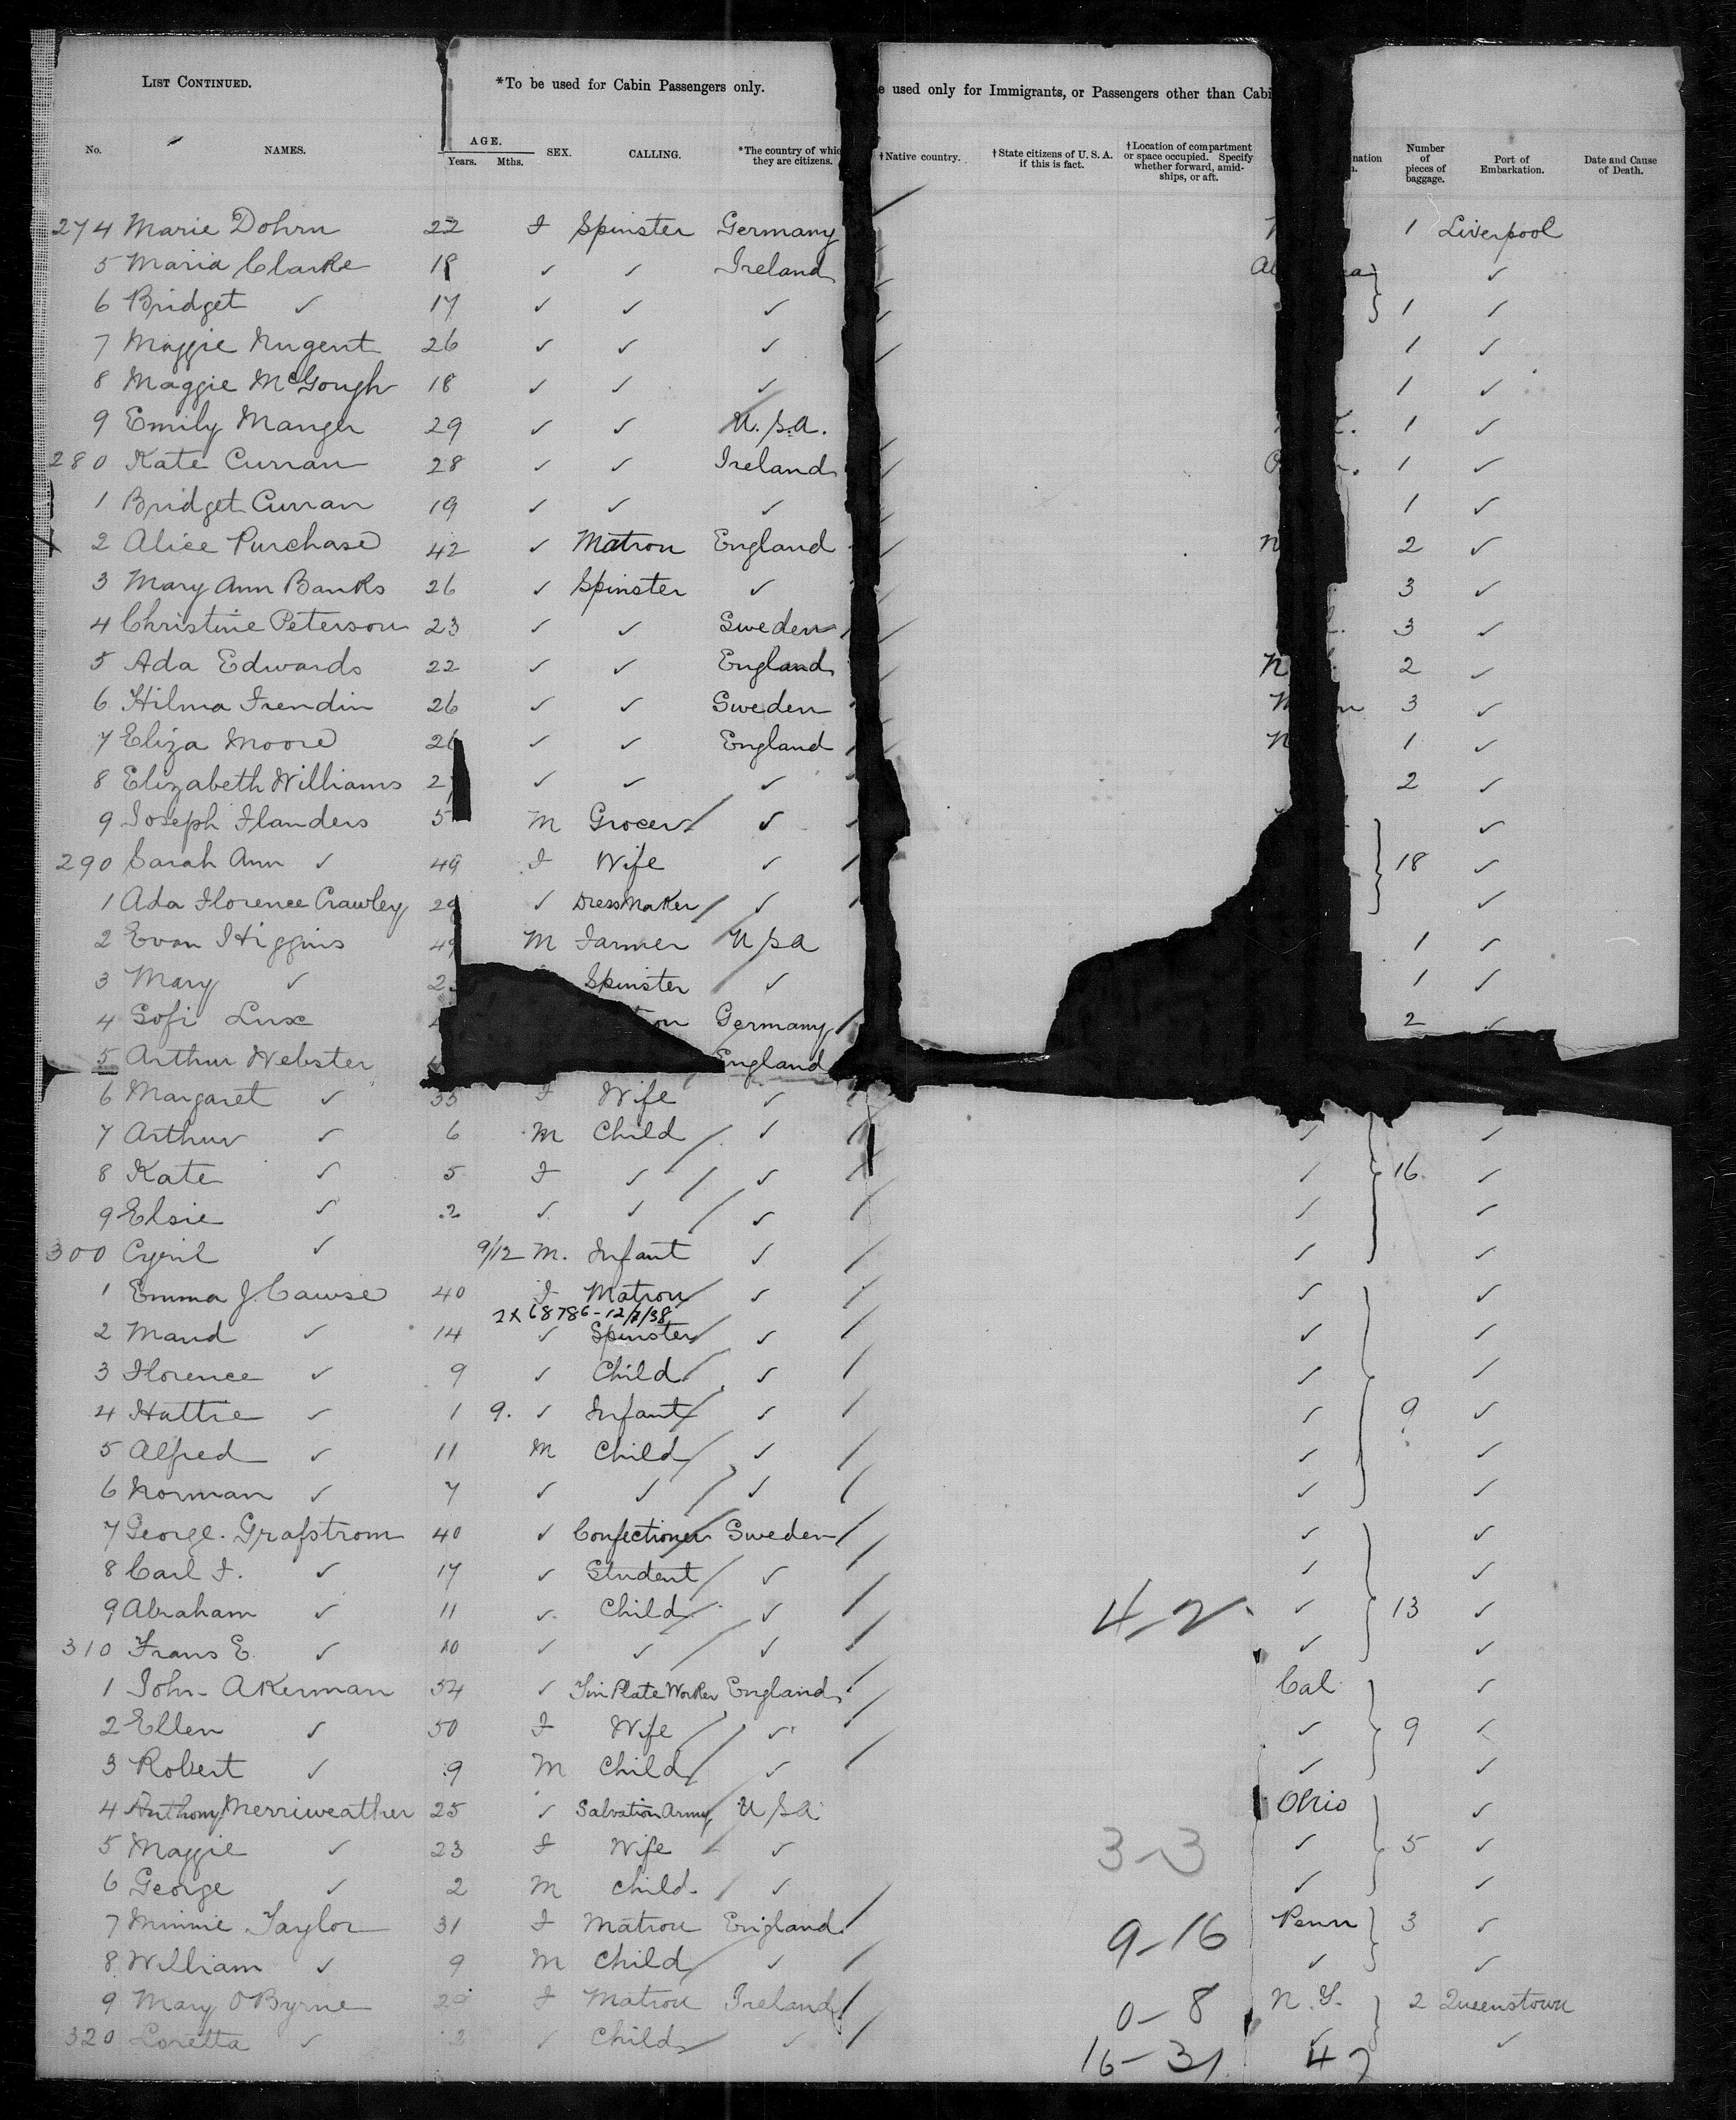 LIST CONTINUED. *To be used for Cabin Passengers only. e used only for Immigrants, or Passengers other than Cabi
No. NAMES. AGE. Years. Mths. SEX. CALLING. *The country of whic they are citizens. †Native country. †State citizens of U. S. A. if this is fact. †Location of compartment or space occupied. Specify whether forward, amid-ships, or aft. nation Number of pieces of baggage. Port of Embarkation. Date and Cause of Death.
274 Marie Dohrn 22 F Spinster Germany 1 Liverpool
5 Maria Clarke 18 ✓ ✓ Ireland ✓
6 Bridget ✓ 17 ✓ ✓ ✓ 1 ✓
7 Maggie Nugent 26 ✓ ✓ ✓ 1 ✓
8 Maggie McGough 18 ✓ ✓ ✓ 1 ✓
9 Emily Manger 29 ✓ ✓ U.S.A. 1 ✓
280 Kate Curran 28 ✓ ✓ Ireland 1 ✓
1 Bridget Curran 19 ✓ ✓ ✓ 1 ✓
2 Alice Purchase 42 ✓ Matron England N 2 ✓
3 Mary Ann Banks 26 ✓ Spinster ✓ 3 ✓
4 Christine Peterson 23 ✓ ✓ Sweden 3 ✓
5 Ada Edwards 22 ✓ ✓ England N 2 ✓
6 Hilma Frendin 26 ✓ ✓ Sweden 3 ✓
7 Eliza Moore 26 ✓ ✓ England N 1 ✓
8 Elizabeth Williams 2 ✓ ✓ ✓ 2 ✓
9 Joseph Flanders 5 M Grocer ✓ ✓
290 Sarah Ann ✓ 49 F Wife ✓ 18 ✓
1 Ada Florence Crawley 29 ✓ Dressmaker ✓ ✓
2 Evan Higgins 49 M Farmer USA 1 ✓
3 Mary ✓ 2 Spinster ✓ 1 ✓
4 Sofi Lux Germany 2 ✓
5 Arthur Webster England
6 Margaret ✓ 35 F Wife ✓
7 Arthur ✓ 6 M Child ✓ ✓ ✓
8 Kate ✓ 5 F ✓ ✓ ✓ 16 ✓
9 Elsie ✓ 2 ✓ ✓ ✓ ✓ ✓
300 Cyril ✓ 9/12 M. Infant ✓ ✓ ✓
1 Emma J. Cawse 40 F Matron ✓ ✓ ✓
2X 68786-12/7/38
2 Maud ✓ 14 ✓ Spinster ✓ ✓ ✓
3 Florence ✓ 9 ✓ Child ✓ ✓ ✓
4 Hattie ✓ 1 9. ✓ Infant ✓ ✓ 9 ✓
5 Alfred ✓ 11 M Child ✓ ✓ ✓
6 Norman ✓ 7 ✓ ✓ ✓ ✓ ✓
7 George. Grafstrom 40 ✓ Confectioner Sweden ✓ ✓
8 Carl F. ✓ 17 ✓ Student ✓ ✓ ✓
9 Abraham ✓ 11 ✓ Child ✓ 4-2 ✓ 13 ✓
310 Frans E. ✓ 10 ✓ ✓ ✓ ✓ ✓
1 John Akerman 54 ✓ Tin Plate Worker England Cal ✓
2 Ellen ✓ 50 F Wife ✓ ✓ 9 ✓
3 Robert ✓ 9 M Child ✓ ✓ ✓
4 Anthony Merriweather 25 ✓ Salvation Army USA Ohio ✓
5 Maggie ✓ 23 F Wife ✓ 3-3 ✓ 5 ✓
6 George ✓ 2 M Child ✓ ✓ ✓
7 Minnie Taylor 31 F Matron England 9-16 Penn 3 ✓
8 William ✓ 9 M Child ✓ ✓ ✓
9 Mary O'Byrne 29 F Matron Ireland 0-8 N.Y. 2 Queenstown
320 Loretta ✓ 2 ✓ Child ✓ ✓ ✓
16-31 47